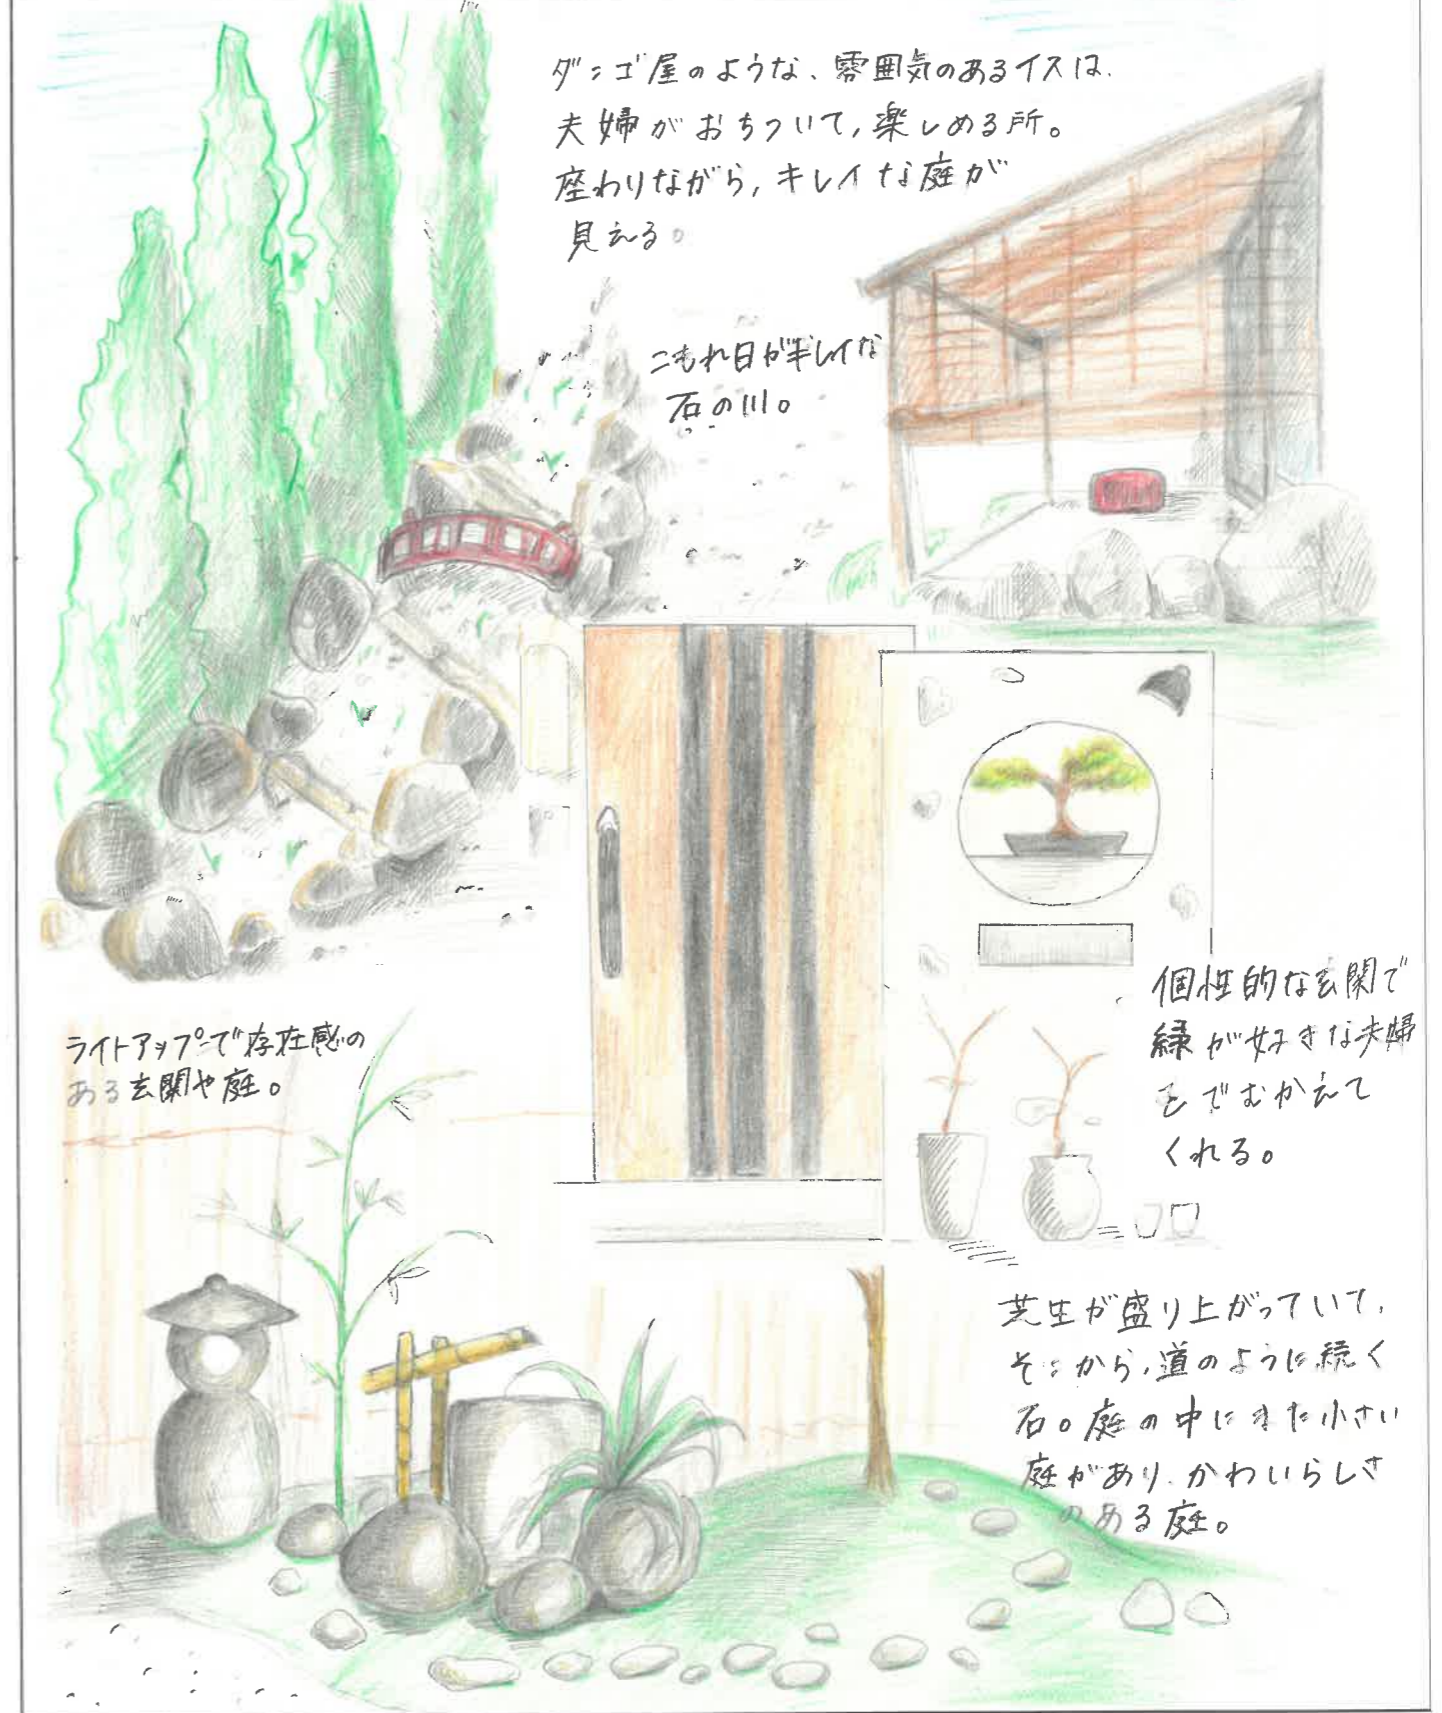 ダンゴ屋のような、雰囲気のあるイスは、
夫婦がおちついて、楽しめる所。
座わりながら、キレイな庭が
見える。
こもれ日がキレイな
石の川。
個性的な玄関で
緑が好きな夫婦
をでむかえて
くれる。
ライトアップで存在感の
ある玄関や庭。
芝生が盛り上がっていて、
そこから、道のように続く
石。庭の中にまた小さい
庭があり、かわいらしさ
のある庭。